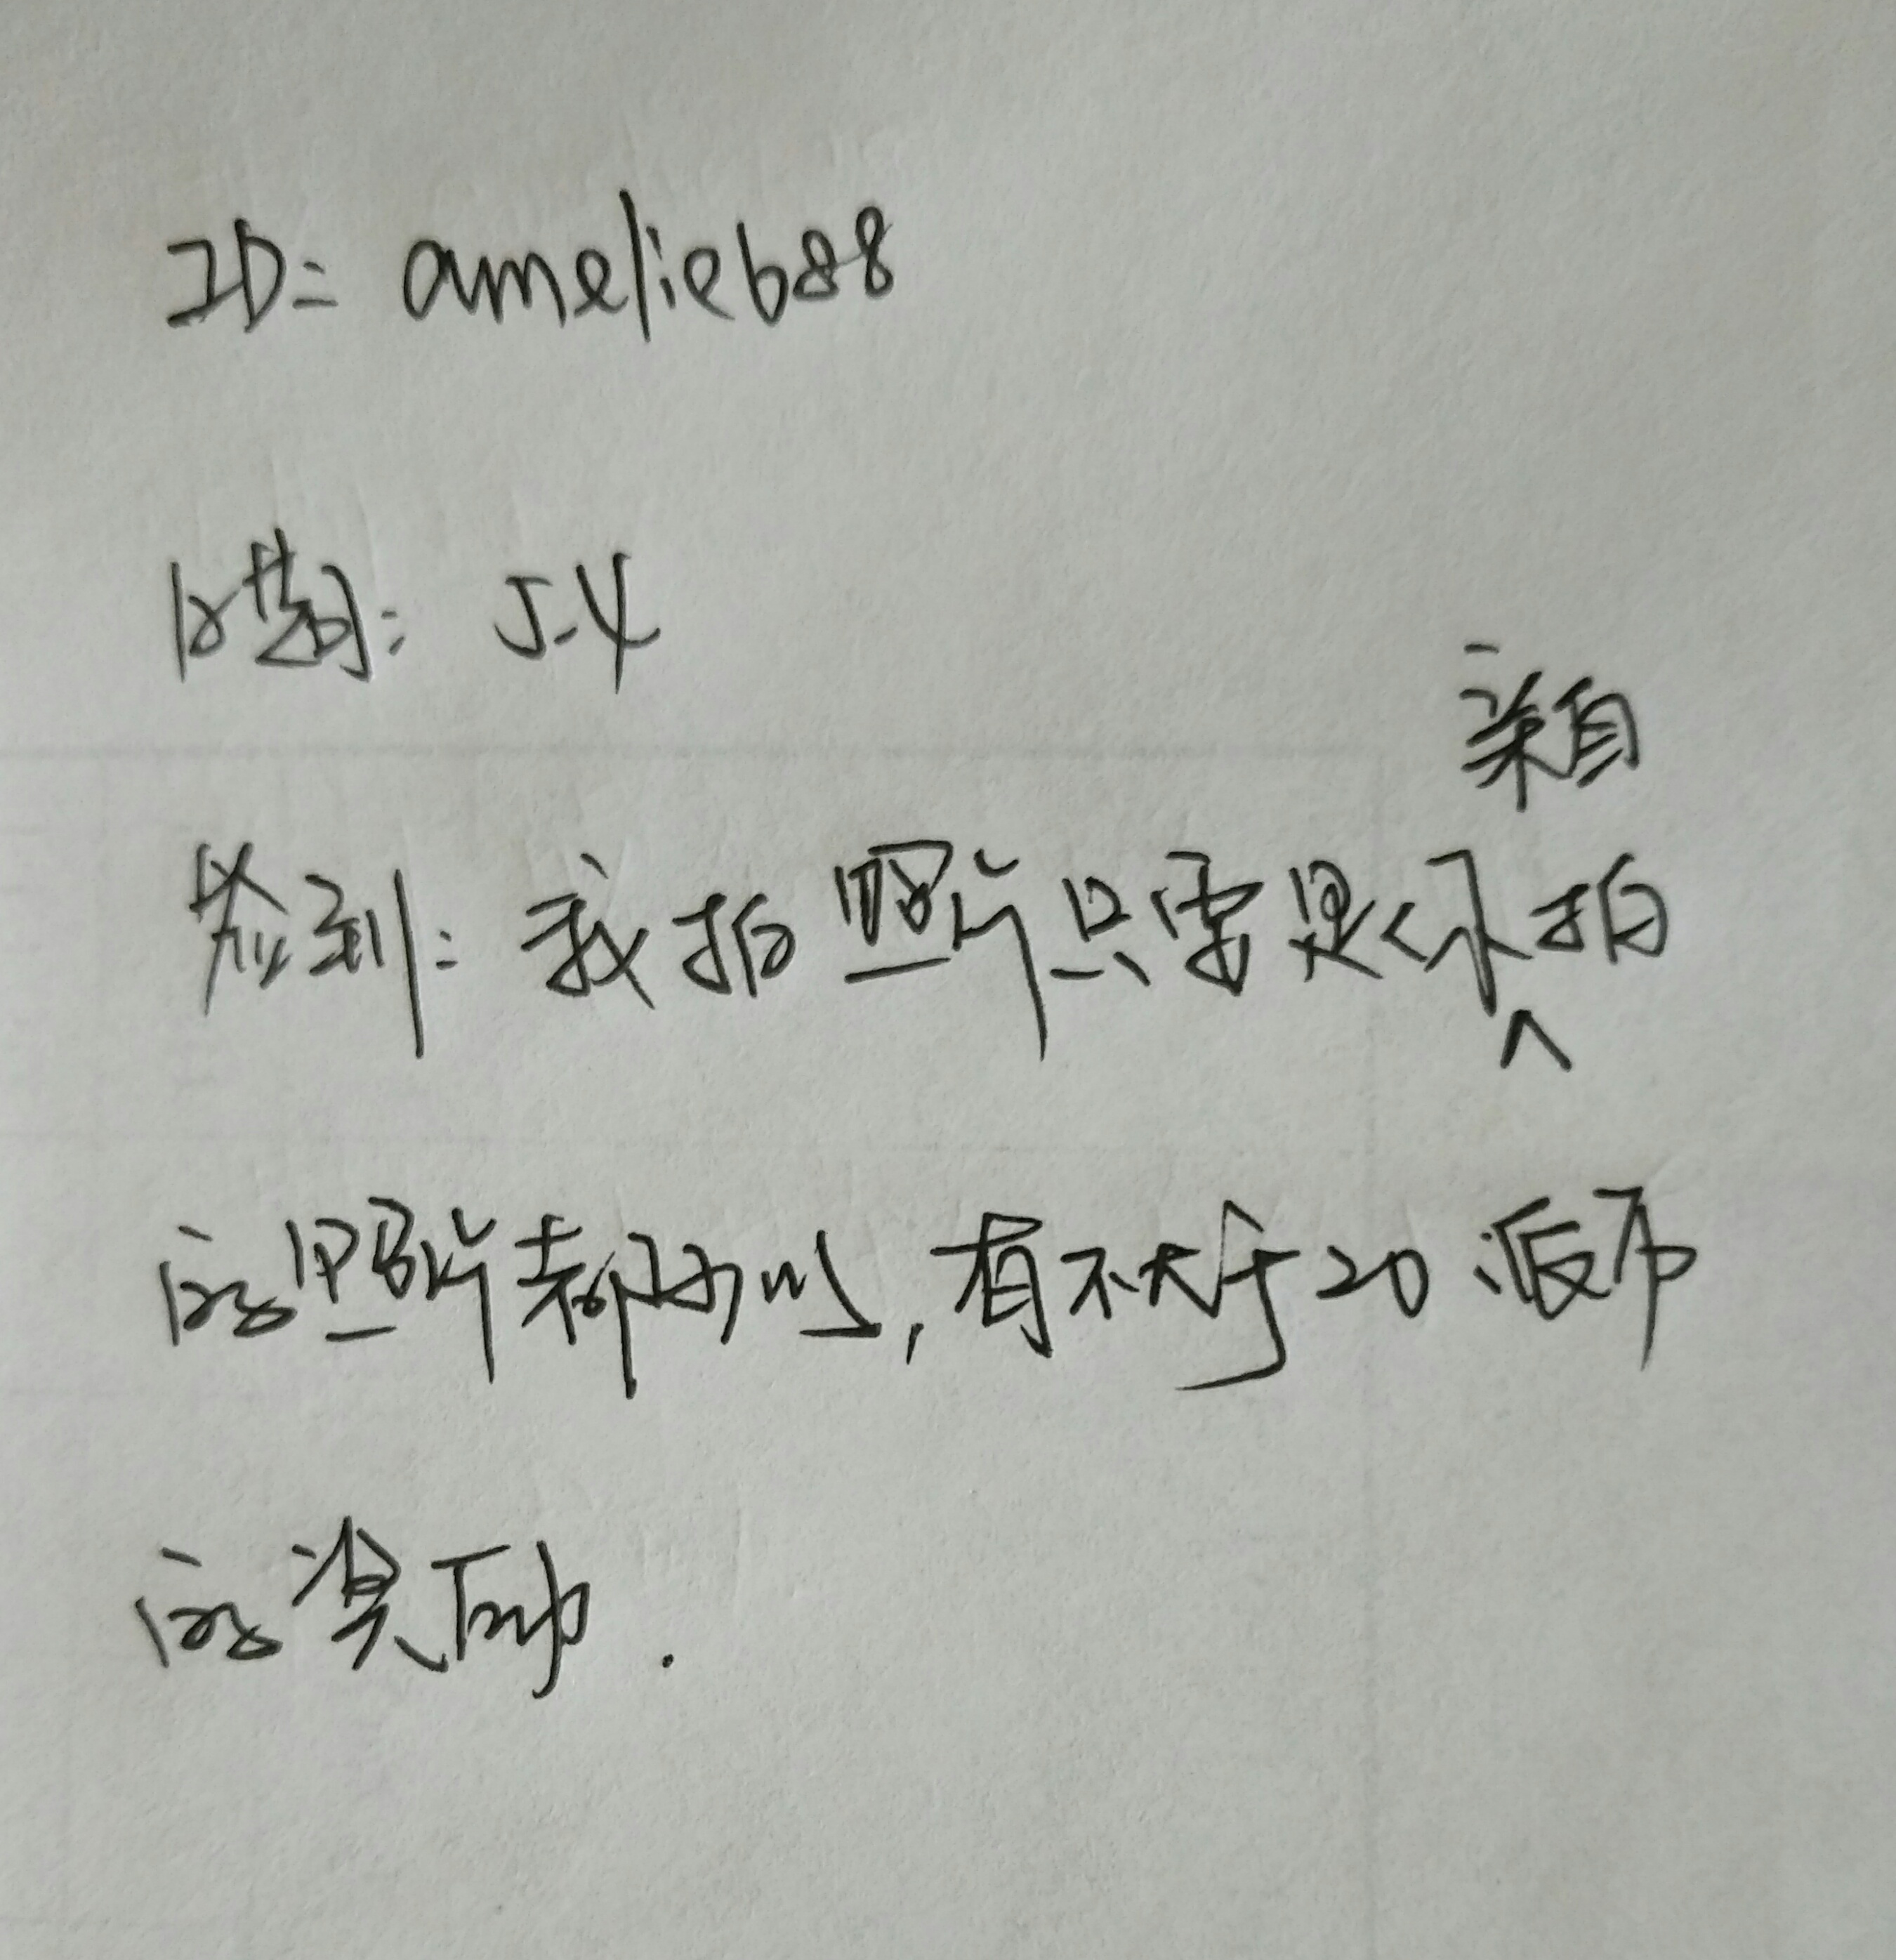 ID: amelie688
日期: 5.4
签到: 我拍照片只需是你亲自拍
的照片都可以,有不大于20派币
的奖励.